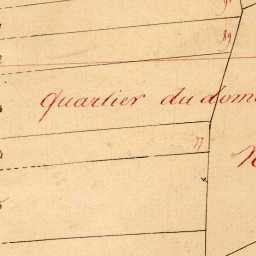 89
Quartier du dom
77